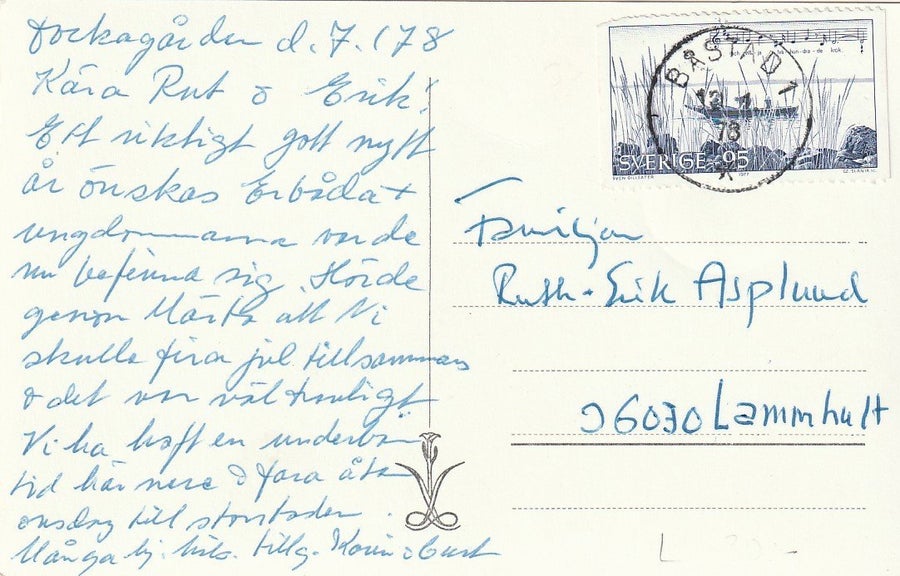 Dockagården d. 7.1 78
Kära Rut o Erik!
Ett riktigt gott nytt
år önskas Er båda +
ungdomarna var de
nu befinna sig. Hörde
genom Märta att Ni
skulle fira jul tillsammans
o det var väl trevligt
Vi ha haft en underbar
tid här nere o fara åter
onsdag till storstaden.
Många hj. häls. tillg. Karin o Curt
BÅSTAD 1
78
SVERIGE 95
SVEN GILLSÄTER
1977
CZ. SLANIA SC.
Familjen
Ruth - Erik Asplund
36030 Lammhult